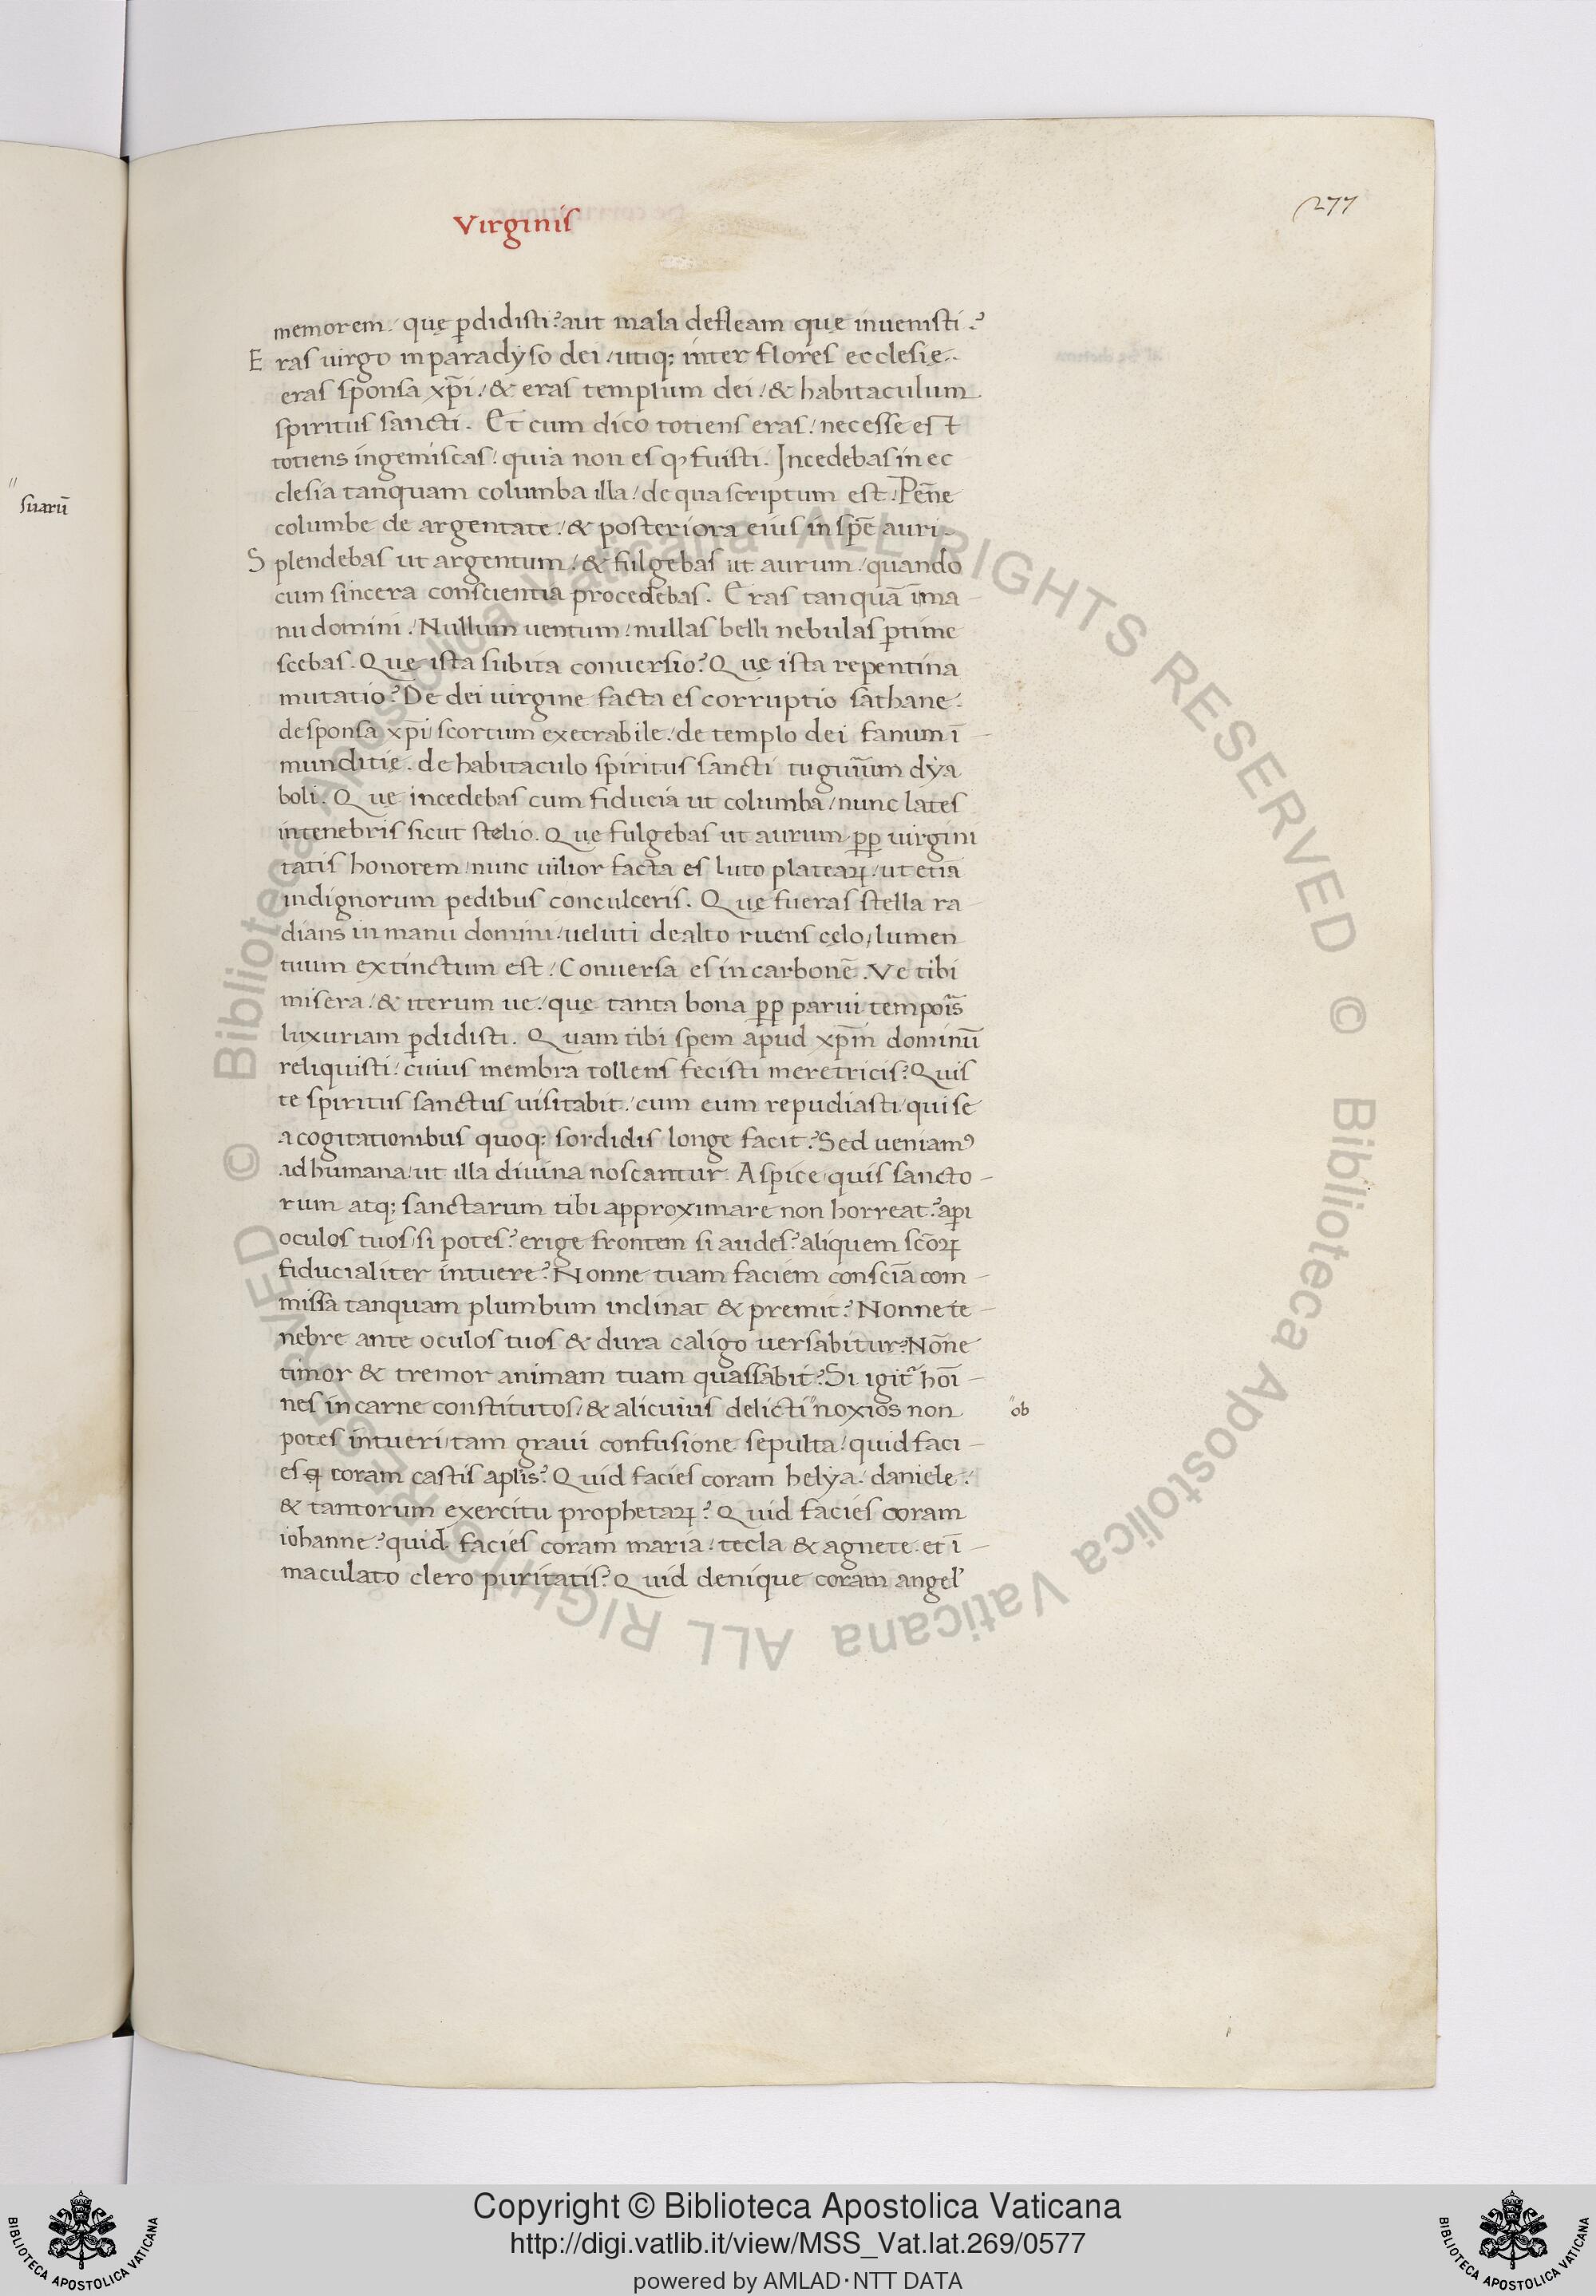 Virginis
277
memorem. quę ꝑdidisti? aut mala defleam quę inuenisti?
Eras uirgo in paradyso dei / utiq; inter flores ecclesię.
eras sponsa xp̄i / & eras templum dei / & habitaculum
spiritus sancti. Et cum dico totiens eras / necesse est
totiens ingemiscas / quia non es qͥ fuisti. Incedebas in ec
clesia tanquam columba illa / de qua scriptum est. Pen̄e
columbe de argentate / & posteriora eius in spē auri.
Splendebas ut argentum / & fulgebas ut aurum / quando
cum sincera conscientia procedebas. Eras tanquā īma
nu domini. Nullum uentum / nullas belli nebulas ꝑtime
scebas. Quę ista subita conuersio? Quę ista repentina
mutatio? De dei uirgine facta es corruptio sathane.
de sponsa xp̄i scortum execrabile. de templo dei fanum ī
munditię. de habitaculo spiritus sancti tuguriū dya
boli. Quę incedebas cum fiducia ut columba / nunc lates
in tenebris sicut stelio. Quę fulgebas ut aurum ꝑꝑ uirgini
tatis honorem / nunc uilior facta es luto plateaꝝ / ut etiā
indignorum pedibus conculceris. Quę fueras stella ra
dians in manu domini / ueluti de alto ruens cęlo / lumen
tuum extinctum est / Conuersa es in carbonē. Ve tibi
misera / & iterum ue / quę tanta bona ꝑꝑ parui tempois̄
luxuriam ꝑdidisti. Quam tibi spem apud xp̄m dominū
reliquisti / cuius membra tollens fecisti meretricis? Quis
te spiritus sanctus uisitabit / cum eum repudiasti / qui se
a cogitationibus quoq; sordidis longe facit? Sed ueniamꝰ
ad humana / ut illa diuina noscantur. Aspice quis sancto
rum atq; sanctarum tibi approximare non horreat? aꝑi
oculos tuos / si potes? erige frontem si audes? aliquem scōꝝ
fiducialiter intuere? Nonne tuam faciem consciā com
missa tanquam plumbum inclinat & premit? Nonne te
nebre ante oculos tuos & dura caligo uersabitur? Nōne
timor & tremor animam tuam quassabit? Si igit᷑ hoī
nes in carne constitutos / & alicuius delicti "noxios non
"ob
potes intueri / tam graui confusione sepulta / quid faci
es coram castis apl̄is? Quid facies coram helya / daniele /
& tantorum exercitu prophetaꝝ? Quid facies coram
iohanne? quid facies coram maria / tecla & agnete. et ī
maculato clero puritatis? Quid denique coram angel'
"
suarū
Copyright © Biblioteca Apostolica Vaticana
http://digi.vatlib.it/view/MSS_Vat.lat.269/0577
powered by AMLAD·NTT DATA
BIBLIOTECA APOSTOLICA VATICANA
BIBLIOTECA APOSTOLICA VATICANA
© Biblioteca Apostolica Vaticana ALL RIGHTS RESERVED © Biblioteca Apostolica Vaticana ALL RIGHTS RESERVED